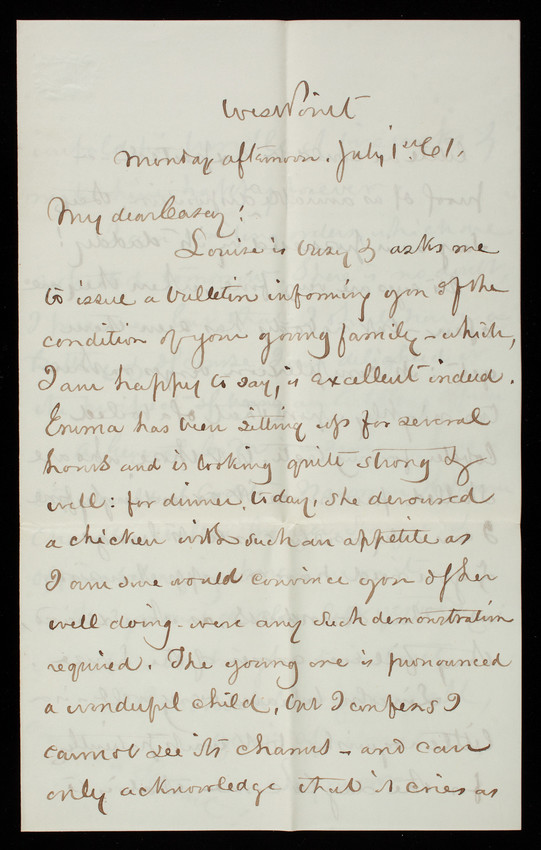 West Point
Monday afternoon. July 1st 61.
My dear Casey!
Louise is busy & asks me
to issue a bulletin informing you of the
condition of your young family - which,
I am happy to say, is excellent indeed.
Emma has been sitting up for several
hours and is looking quite strong &
well: for dinner, today, she devoured
a chicken with such an appetite as
I am sure would convince you of her
well doing - were any such demonstration
required. The young one is pronounced
a wonderful child, but I confess I
cannot see its charms - and can
only acknowledge that it cries as